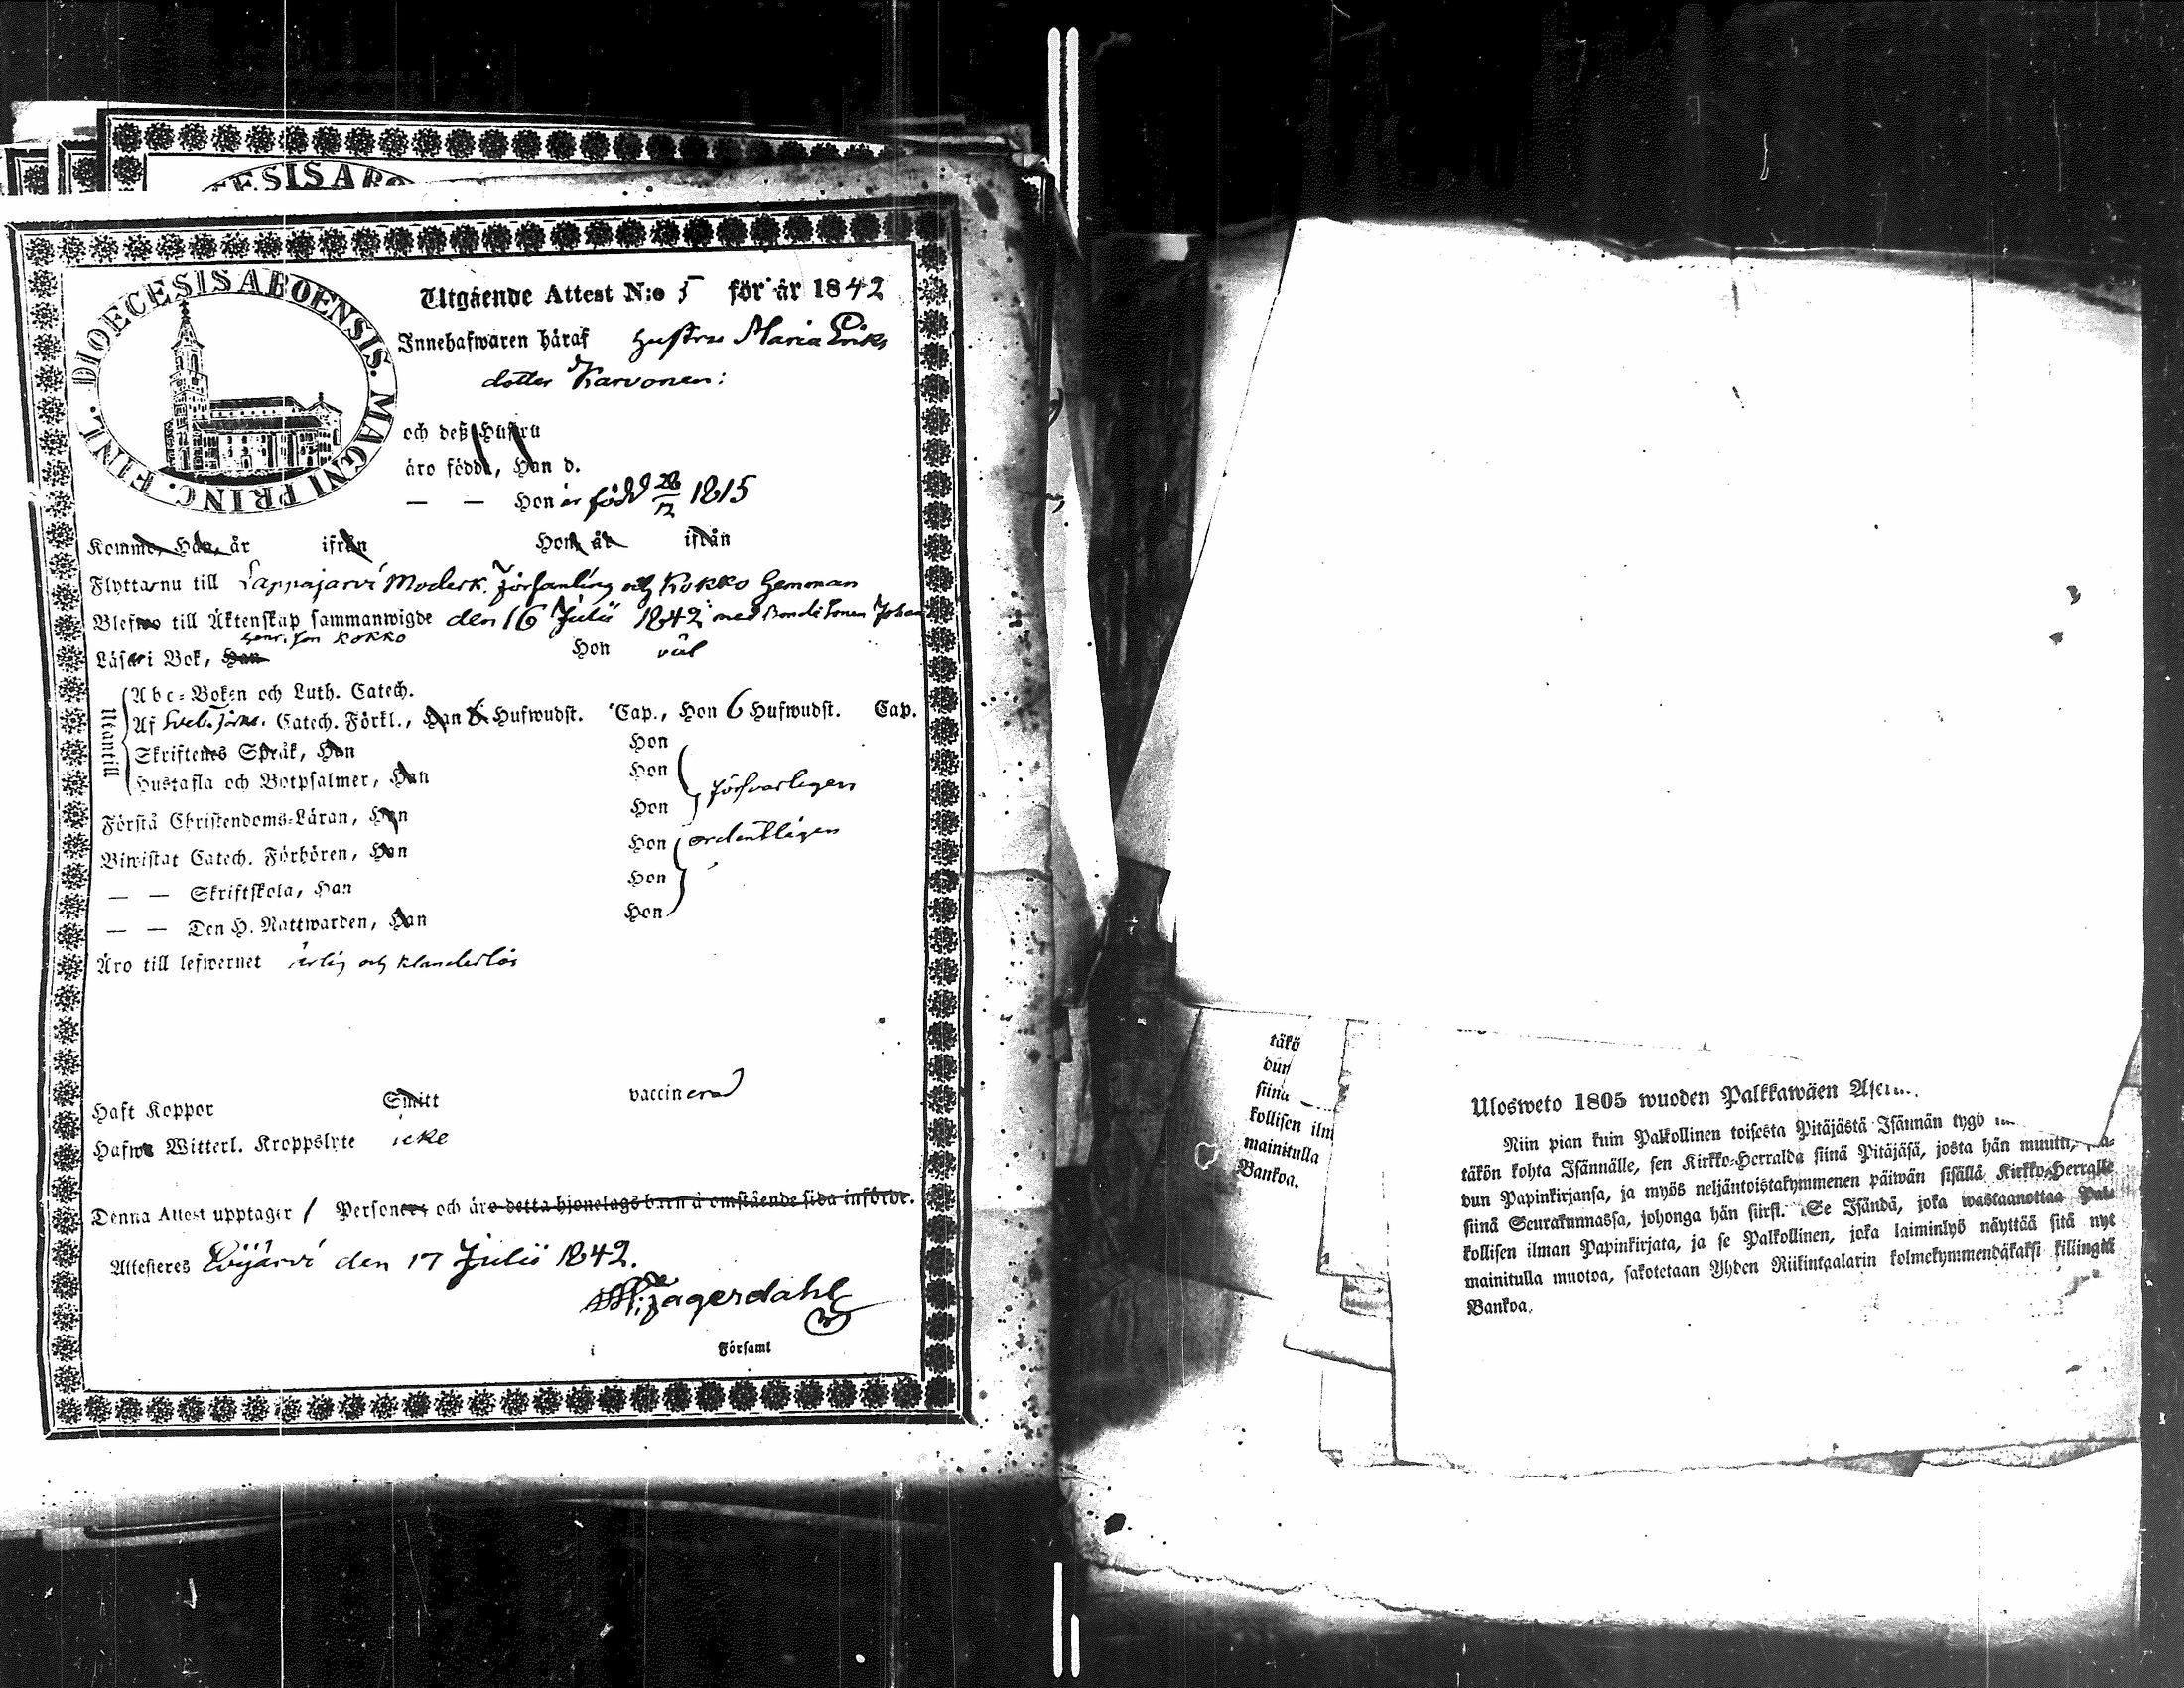 ESIS ABO
DIOECESIS ABOENSIS. MAGNI PRINC. FINL.
Utgående Attest N:o 5 för år 1842
Innehafwaren häraf hustru Maria Eriks
dotter Karvonen:
och deß Hustru
äro födde, Han d.
— — Hon är född 28/12 1815
Komme, Han, år ifrån Hon år ifrån
Flytta nu till Lappajärvi Moderk. församling och Kokko hemman
Blefwo till Äktenskap sammanwigde den 16 Julii 1842 med Bondesonen Johan
Henr.son Kokko
Läsa i Bok, Han Hon väl
Utantill
Abc-Boken och Luth. Catech.
Af Svebi. förkl. Catech. Förkl., Han 6 Hufwudst. Cap., Hon 6 Hufwudst. Cap.
Skriftenes Språk, Han Hon
Hustafla och Botpsalmer, Han Hon försvarligen
Förstå Christendoms-Läran, Han Hon
Biwistat Catech. Förhören, Han Hon ordentligen
— — Skriftskola, Han Hon
— — Den H. Nattwarden, Han Hon
Äro till lefwernet ärlig och klanderlös
Haft Koppor Smitt vaccinerad
Hafwa Witterl. Kroppslyte icke
Denna Attest upptager 1 Personer och äro detta hjonelags barn å omstående sida införde.
Attesteres Evijärvi den 17 Julii 1842.
Jagerdahl
i Församl
täkö
dun
siinä
kollisen ilm
mainitulla
Bankoa.
Ulosweto 1805 wuoden Palkkawäen Aset
Niin pian kuin Palkollinen toisesta Pitäjästä Isännän tygö
täkön kohta Isännälle, sen Kirkko-Herralda siinä Pitäjäsä, josta hän muutti,
dun Papinkirjansa, ja myös neljäntoistakymmenen päiwän sisällä Kirkko-Herralle
siinä Seurakunnassa, johonga hän siirst. Se Isändä, joka wastaanottaa Pal-
kollisen ilman Papinkirjata, ja se Palkollinen, joka laiminlyö näyttää sitä nyt
mainitulla muotoa, sakotetaan Yhden Riikinkaalarin kolmekymmendäkaksi killingiä
Bankoa.